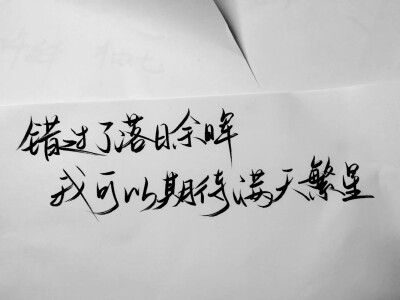 错过了落日余晖
我可以期待满天繁星